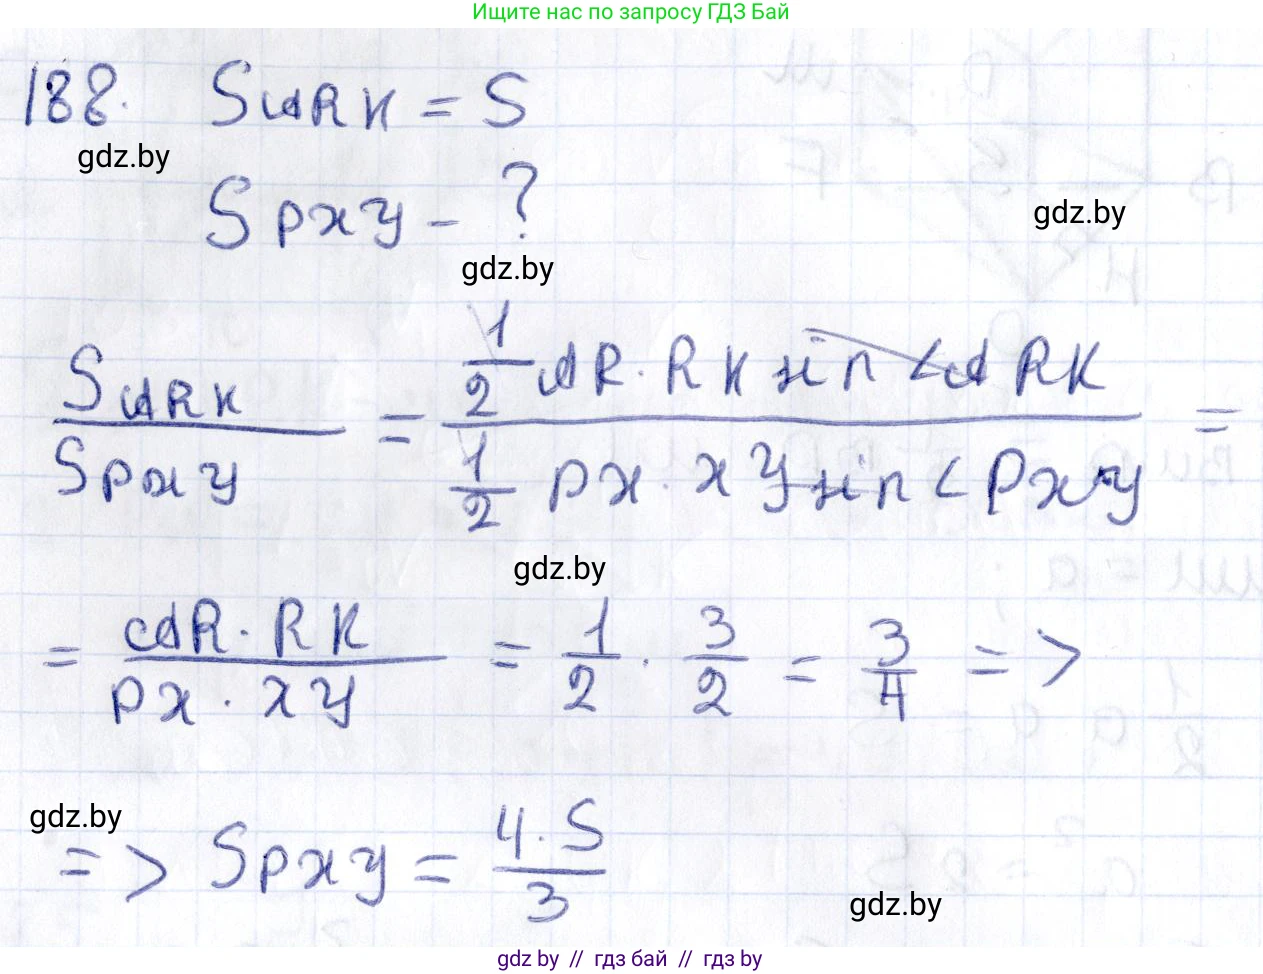 Ищите нас по запросу ГДЗ Бай
188. S ARK = S
gdz.by
S PXY - ?
gdz.by
gdz.by
S ARK / S PXY = 1/2 AR · RK sin < ARK / 1/2 PX · XY sin < PXY =
gdz.by
= AR · RK / PX · XY = 1/2 · 3/2 = 3/4 =>
gdz.by
=> S PXY = 4 · S / 3
gdz.by
gdz.by // гдз бай // гдз by